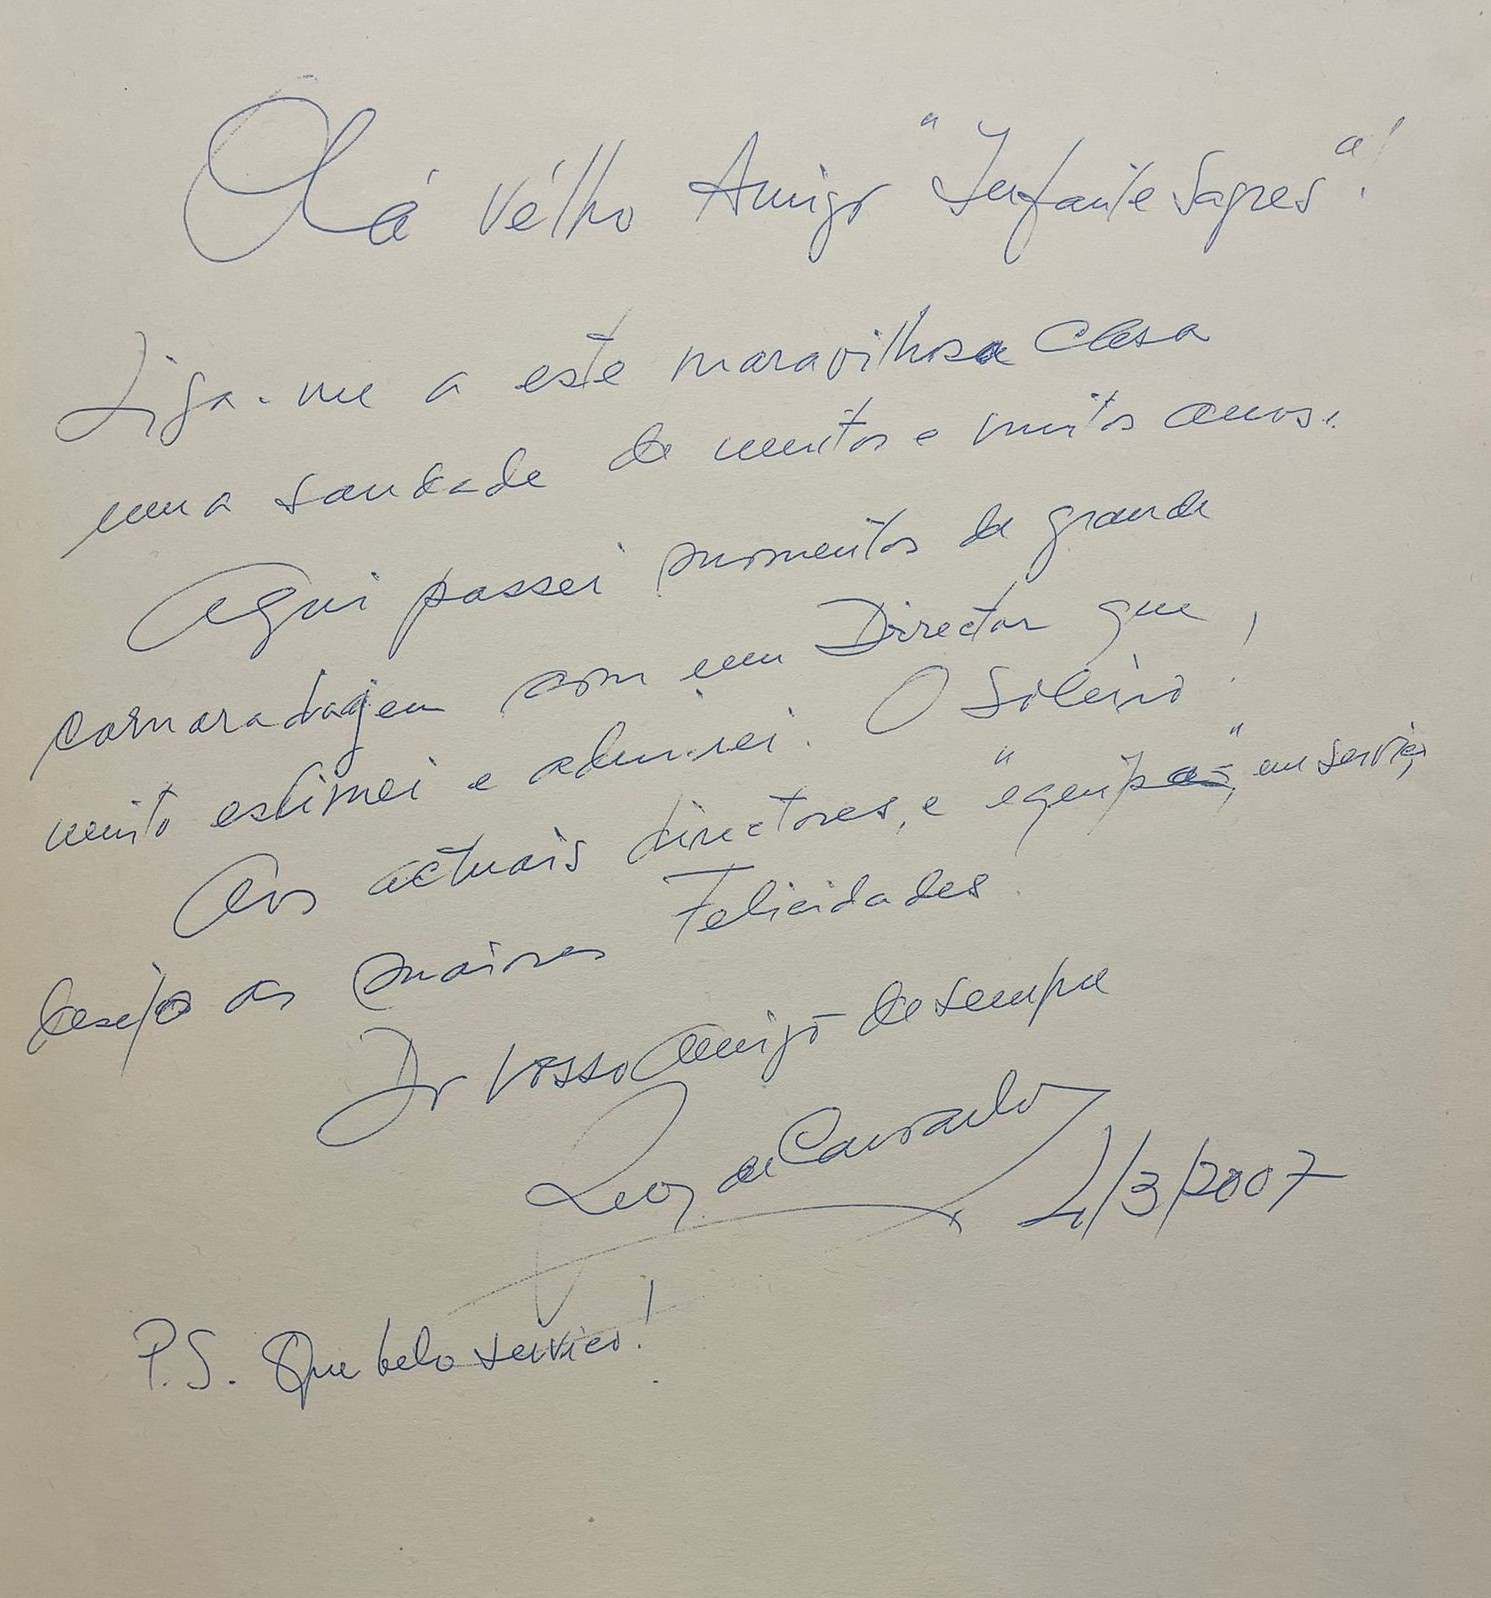 Olá Vélho Amigo "Infante Sagres"!
Liga-me a este maravilhosa Casa
uma saudade de muitos e muitos anos.
Aqui passei momentos de grande
camaradagem com um Director que
muito estimei e admirei. O Soleiro!
Aos actuais directores, e "equipas", em serviço
desejo as maiores Felicidades.
Do vosso Amigo de sempre
de Carvalho
4/3/2007
P.S. Que belo serviço!